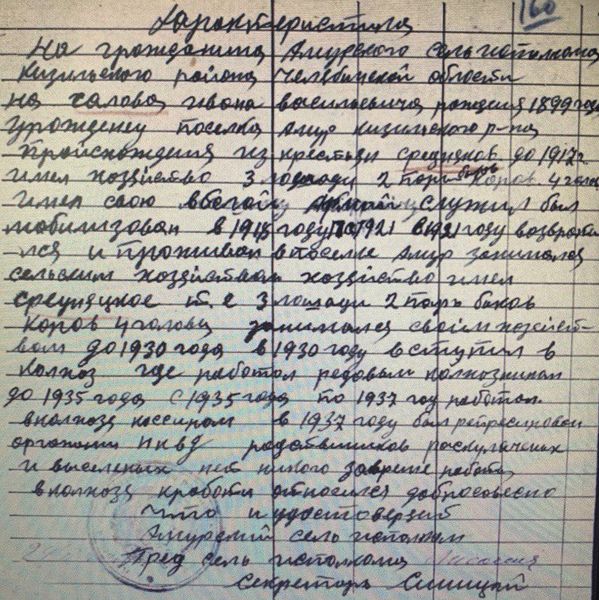 160
Характеристика
на гражданина Амурского сельисполкома
Кизильского района Челябинской области
на Чалова Ивана Васильевича рождения 1899 года
урожденец поселка Амур Кизильского р-на
Происхождения из крестьян средняков. до 1917 г.
имел хозяйство 3 лошади 2 пары быков Коров 4 голов
имел свою в белой Армии служил был
мобилизован в 1918 году по 1921 в 1921 году возврати
-лся и проживал в поселке Амур занимался
сельским хозяйством хозяйство имел
средняцкое т.е 3 лошади 2 пары быков
Коров 4 головы занимался своим хозяйст-
вом до 1930 года в 1930 году вступил в
колхоз где работал редовым колхозником
до 1935 года с 1935 года по 1937 год работал
в колхозе кассиром в 1937 году был репресирован
органами НКВД родственников раскулаченых
и выселеных нет никого за время работы
в колхозе к работи относился добросовесно
Что и удостоверяет
Амурский сельисполком
Пред сельисполкома
Секретарь Синицкий